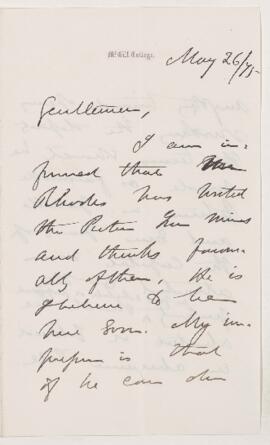 McGill College.
May 26/75
Gentlemen,
I am in-
formed that
Rhodes has visited
the Pictou Iron mines
and thinks favour-
ably of them, He is
I believe to be
here soon. My im-
pression is that
if he can